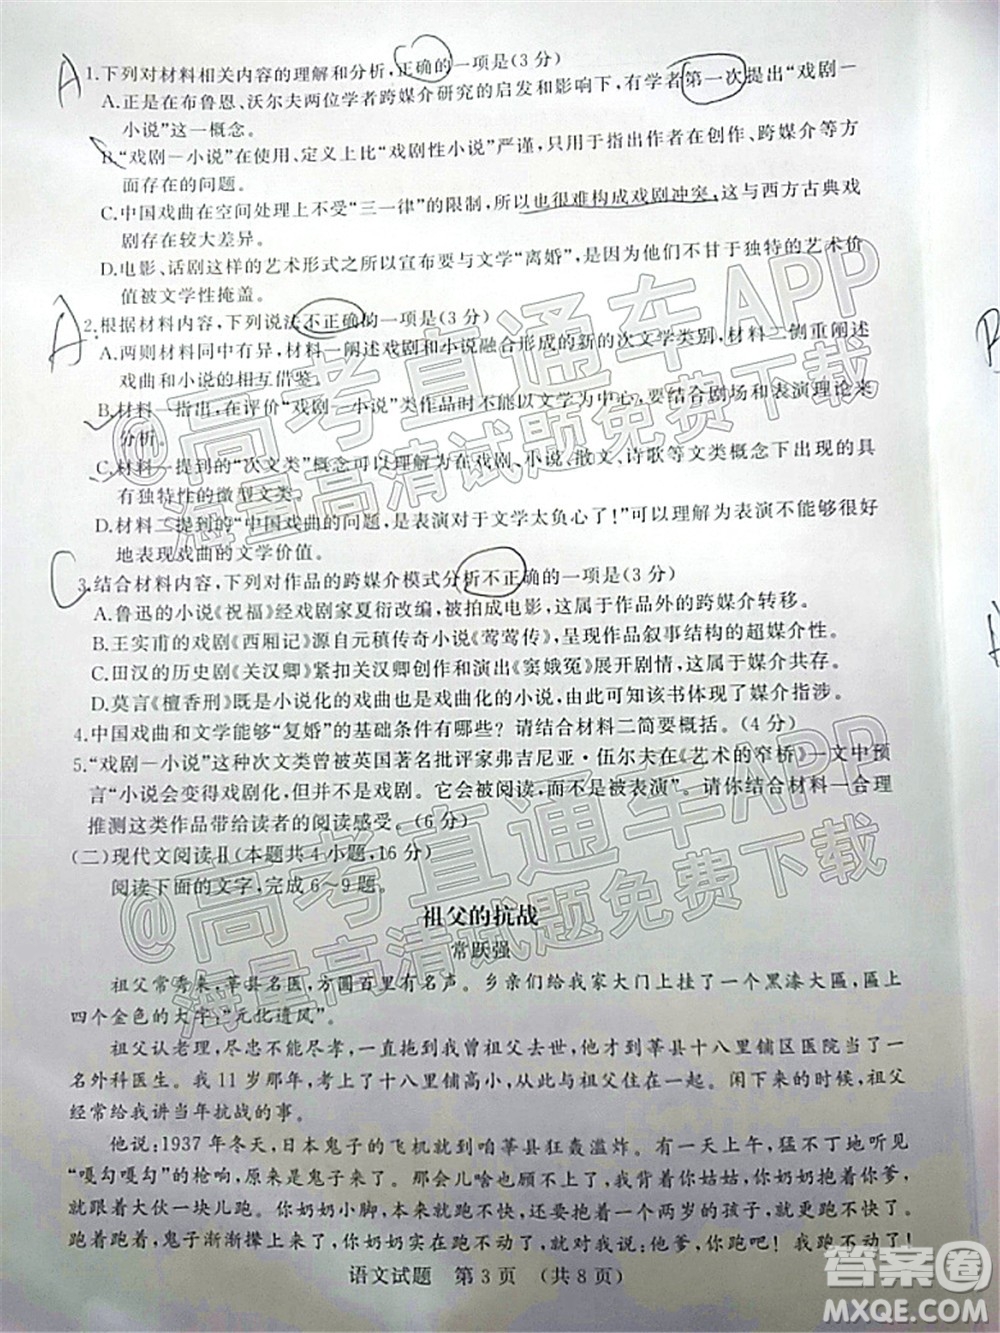 A
1.下列对材料相关内容的理解和分析,正确的一项是(3 分)
A.正是在布鲁恩、沃尔夫两位学者跨媒介研究的启发和影响下,有学者第一次提出“戏剧—
小说”这一概念。
B.“戏剧—小说”在使用、定义上比“戏剧性小说”严谨,只用于指出作者在创作、跨媒介等方
面存在的问题。
C.中国戏曲在空间处理上不受“三一律”的限制,所以也很难构成戏剧冲突,这与西方古典戏
剧存在较大差异。
D.电影、话剧这样的艺术形式之所以宣布要与文学“离婚”,是因为他们不甘于独特的艺术价
值被文学性掩盖。
A
2.根据材料内容,下列说法不正确的一项是(3 分)
A.两则材料同中有异,材料一阐述戏剧和小说融合形成的新的次文学类别,材料二侧重阐述
戏曲和小说的相互借鉴。
B.材料一指出,在评价“戏剧—小说”类作品时不能以文学为中心,要结合剧场和表演理论来
分析。
C.材料一提到的“次文类”概念可以理解为在戏剧、小说、散文、诗歌等文类概念之下的具
有独特性的微型文类。
D.材料二提到的“中国戏曲的问题,是表演对于文学太负心了!”可以理解为表演没有很好
地表现戏曲的文学价值。
C
3.结合材料内容,下列对作品的跨媒介模式分析不正确的一项是(3 分)
A.鲁迅的小说《祝福》经戏剧家夏衍改编,被拍成电影,这属于作品外的跨媒介转移。
B.王实甫的戏剧《西厢记》源自元稹传奇小说《莺莺传》,呈现作品叙事结构的超媒介性。
C.田汉的历史剧《关汉卿》围绕关汉卿创作和演出《窦娥冤》展开剧情,这属于媒介共存。
D.莫言的《檀香刑》既是小说化的戏曲也是戏曲化的小说,由此可知该书体现了媒介指涉。
4.中国戏曲和文学能够“复婚”的基础条件有哪些?请结合材料二简要概括。(4 分)
5.“戏剧—小说”这种次文类曾被英国著名批评家弗吉尼亚·伍尔夫在《艺术的窄桥》一文中预
言“小说会变得戏剧化,但并不是戏剧。它会被阅读,而不是被表演”。请你结合材料一合理
推测这类作品带给读者的阅读感受。(6 分)
(二)现代文阅读Ⅱ(本题共 4 小题,16 分)
阅读下面的文字,完成 6～9 题。
祖父的抗战
常跃强
祖父常秀来,莘县名医,方圆百里有名声。乡亲们给我家大门上挂了一个黑漆大匾,匾上
四个金色的大字:“元化遗风”。
祖父认老理,尽忠不能尽孝,等曾祖父去世,他才到莘县十八里铺区医院当了一
名外科医生。我 11 岁那年,考上了十八里铺高小,和祖父住在一起。闲下来的时候,祖父
经常给我讲当年抗战的事。
他说:1937 年冬天,日本鬼子的飞机就到咱莘县狂轰滥炸。有一天上午,猛不丁地听见
“嘎勾嘎勾”的枪响,原来是鬼子来了。那会儿你奶奶背着你姑姑,你奶奶抱着你爹,
就跟着大伙一块儿跑。你奶奶小脚,本来就跑不快,还要抱着一个两岁的孩子,就更跑不快。
跑着跑着,鬼子渐渐撵上来了,你奶奶实在跑不动了,就说:他爹,你跑吧!我跑不动了!
语文试题　第 3 页　(共 8 页)
@高考直通车APP
海量高清试题免费下载
@高考直通车APP
海量高清试题免费下载
答案圈
MXQE.COM